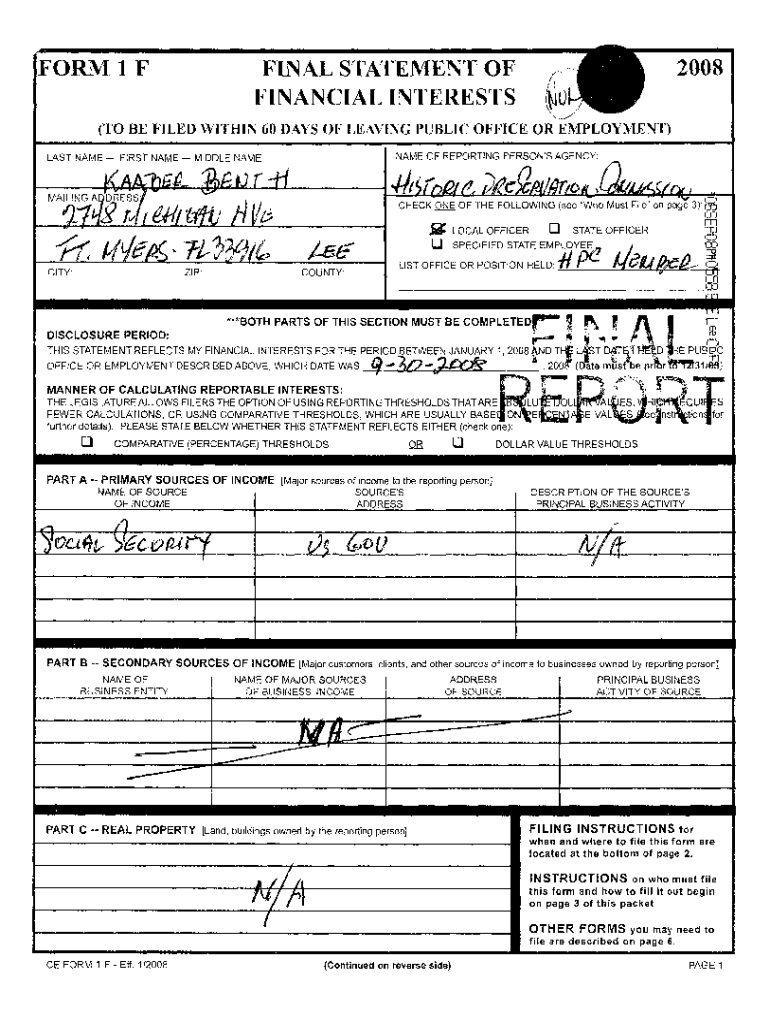 FORM 1 F
FINAL STATEMENT OF
FINANCIAL INTERESTS
2008
(TO BE FILED WITHIN 60 DAYS OF LEAVING PUBLIC OFFICE OR EMPLOYMENT)
LAST NAME — FIRST NAME — MIDDLE NAME
BENT H
MAILING ADDRESS
2748 MICHIGAN AVE
FT. MYERS - FL 33916 LEE
CITY: ZIP: COUNTY:
NAME OF REPORTING PERSON'S AGENCY:
HISTORIC PRESERVATION COMMISSION
CHECK ONE OF THE FOLLOWING (see "Who Must File" on page 3):
LOCAL OFFICER STATE OFFICER
SPECIFIED STATE EMPLOYEE
LIST OFFICE OR POSITION HELD: HPC MEMBER
FINAL
REPORT
***BOTH PARTS OF THIS SECTION MUST BE COMPLETED
DISCLOSURE PERIOD:
THIS STATEMENT REFLECTS MY FINANCIAL INTERESTS FOR THE PERIOD BETWEEN JANUARY 1, 2008 AND THE LAST DATE I HELD THE PUBLIC
OFFICE OR EMPLOYMENT DESCRIBED ABOVE, WHICH DATE WAS 9-30-2008, 2008 (Date must be prior to 12/31/08)
MANNER OF CALCULATING REPORTABLE INTERESTS:
THE LEGISLATURE ALLOWS FILERS THE OPTION OF USING REPORTING THRESHOLDS THAT ARE ABSOLUTE DOLLAR VALUES, WHICH REQUIRES
FEWER CALCULATIONS, OR USING COMPARATIVE THRESHOLDS, WHICH ARE USUALLY BASED ON PERCENTAGE VALUES (see instructions for
further details). PLEASE STATE BELOW WHETHER THIS STATEMENT REFLECTS EITHER (check one):
COMPARATIVE (PERCENTAGE) THRESHOLDS OR DOLLAR VALUE THRESHOLDS
PART A -- PRIMARY SOURCES OF INCOME [Major sources of income to the reporting person]
NAME OF SOURCE SOURCE'S DESCRIPTION OF THE SOURCE'S
OF INCOME ADDRESS PRINCIPAL BUSINESS ACTIVITY
SOCIAL SECURITY US GOV N/A
PART B -- SECONDARY SOURCES OF INCOME [Major customers, clients, and other sources of income to businesses owned by reporting person]
NAME OF NAME OF MAJOR SOURCES ADDRESS PRINCIPAL BUSINESS
BUSINESS ENTITY OF BUSINESS INCOME OF SOURCE ACTIVITY OF SOURCE
N/A
PART C -- REAL PROPERTY [Land, buildings owned by the reporting person]
N/A
FILING INSTRUCTIONS for
when and where to file this form are
located at the bottom of page 2.
INSTRUCTIONS on who must file
this form and how to fill it out begin
on page 3 of this packet
OTHER FORMS you may need to
file are described on page 6.
CE FORM 1 F - Eff. 1/2008 (Continued on reverse side) PAGE 1